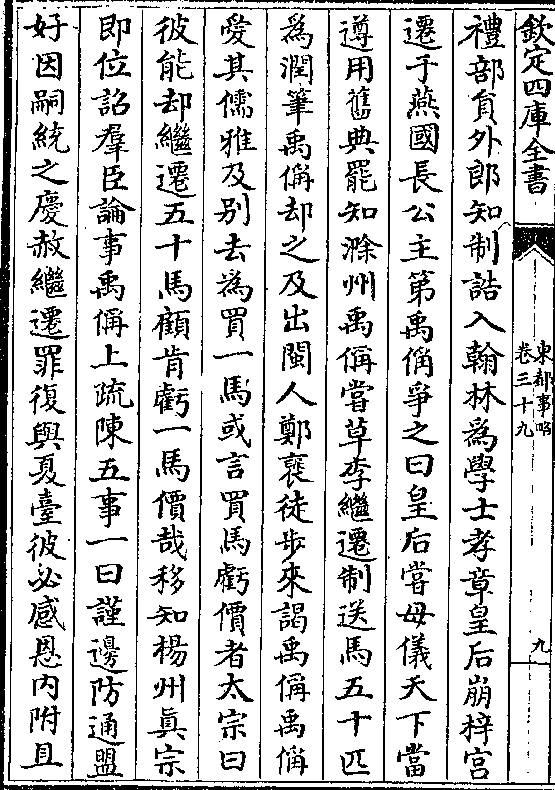 欽定四庫全書
東都事略
卷三十九
九
禮部貟外郎知制誥入翰林為學士孝章皇后崩梓宫
遷于燕國長公主第禹偁爭之曰皇后嘗母儀天下當
遵用舊典罷知滁州禹偁嘗草李繼遷制送馬五十匹
為潤筆禹偁却之及出閩人鄭褒徒步來謁禹偁禹偁
愛其儒雅及别去為買一馬或言買馬虧價者太宗曰
彼能却繼遷五十馬顧肯虧一馬價哉移知楊州真宗
即位詔羣臣論事禹偁上疏陳五事一曰謹邊防通盟
好因嗣統之慶赦繼遷罪復與夏臺彼必感恩内附且